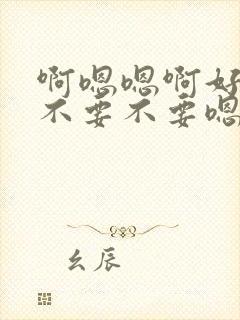 啊嗯嗯啊好
不要不要嗯
幺辰